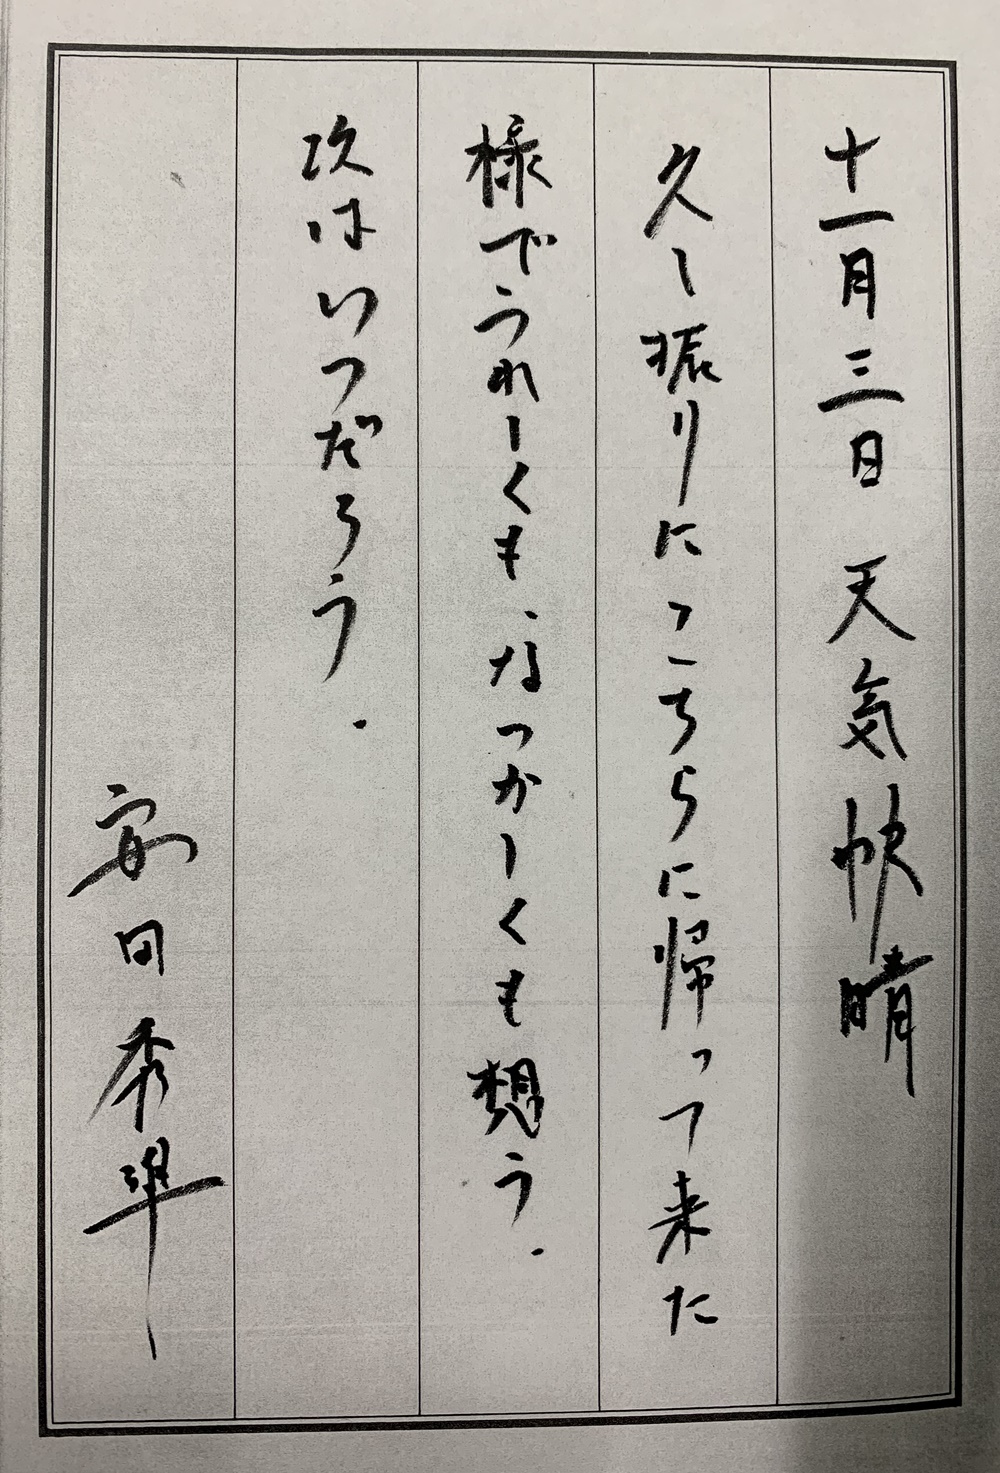 十一月三日 天気快晴
久し振りにこちらに帰って来た
様でうれしくも、なつかしくも想う.
次はいつだろう.
安田秀準